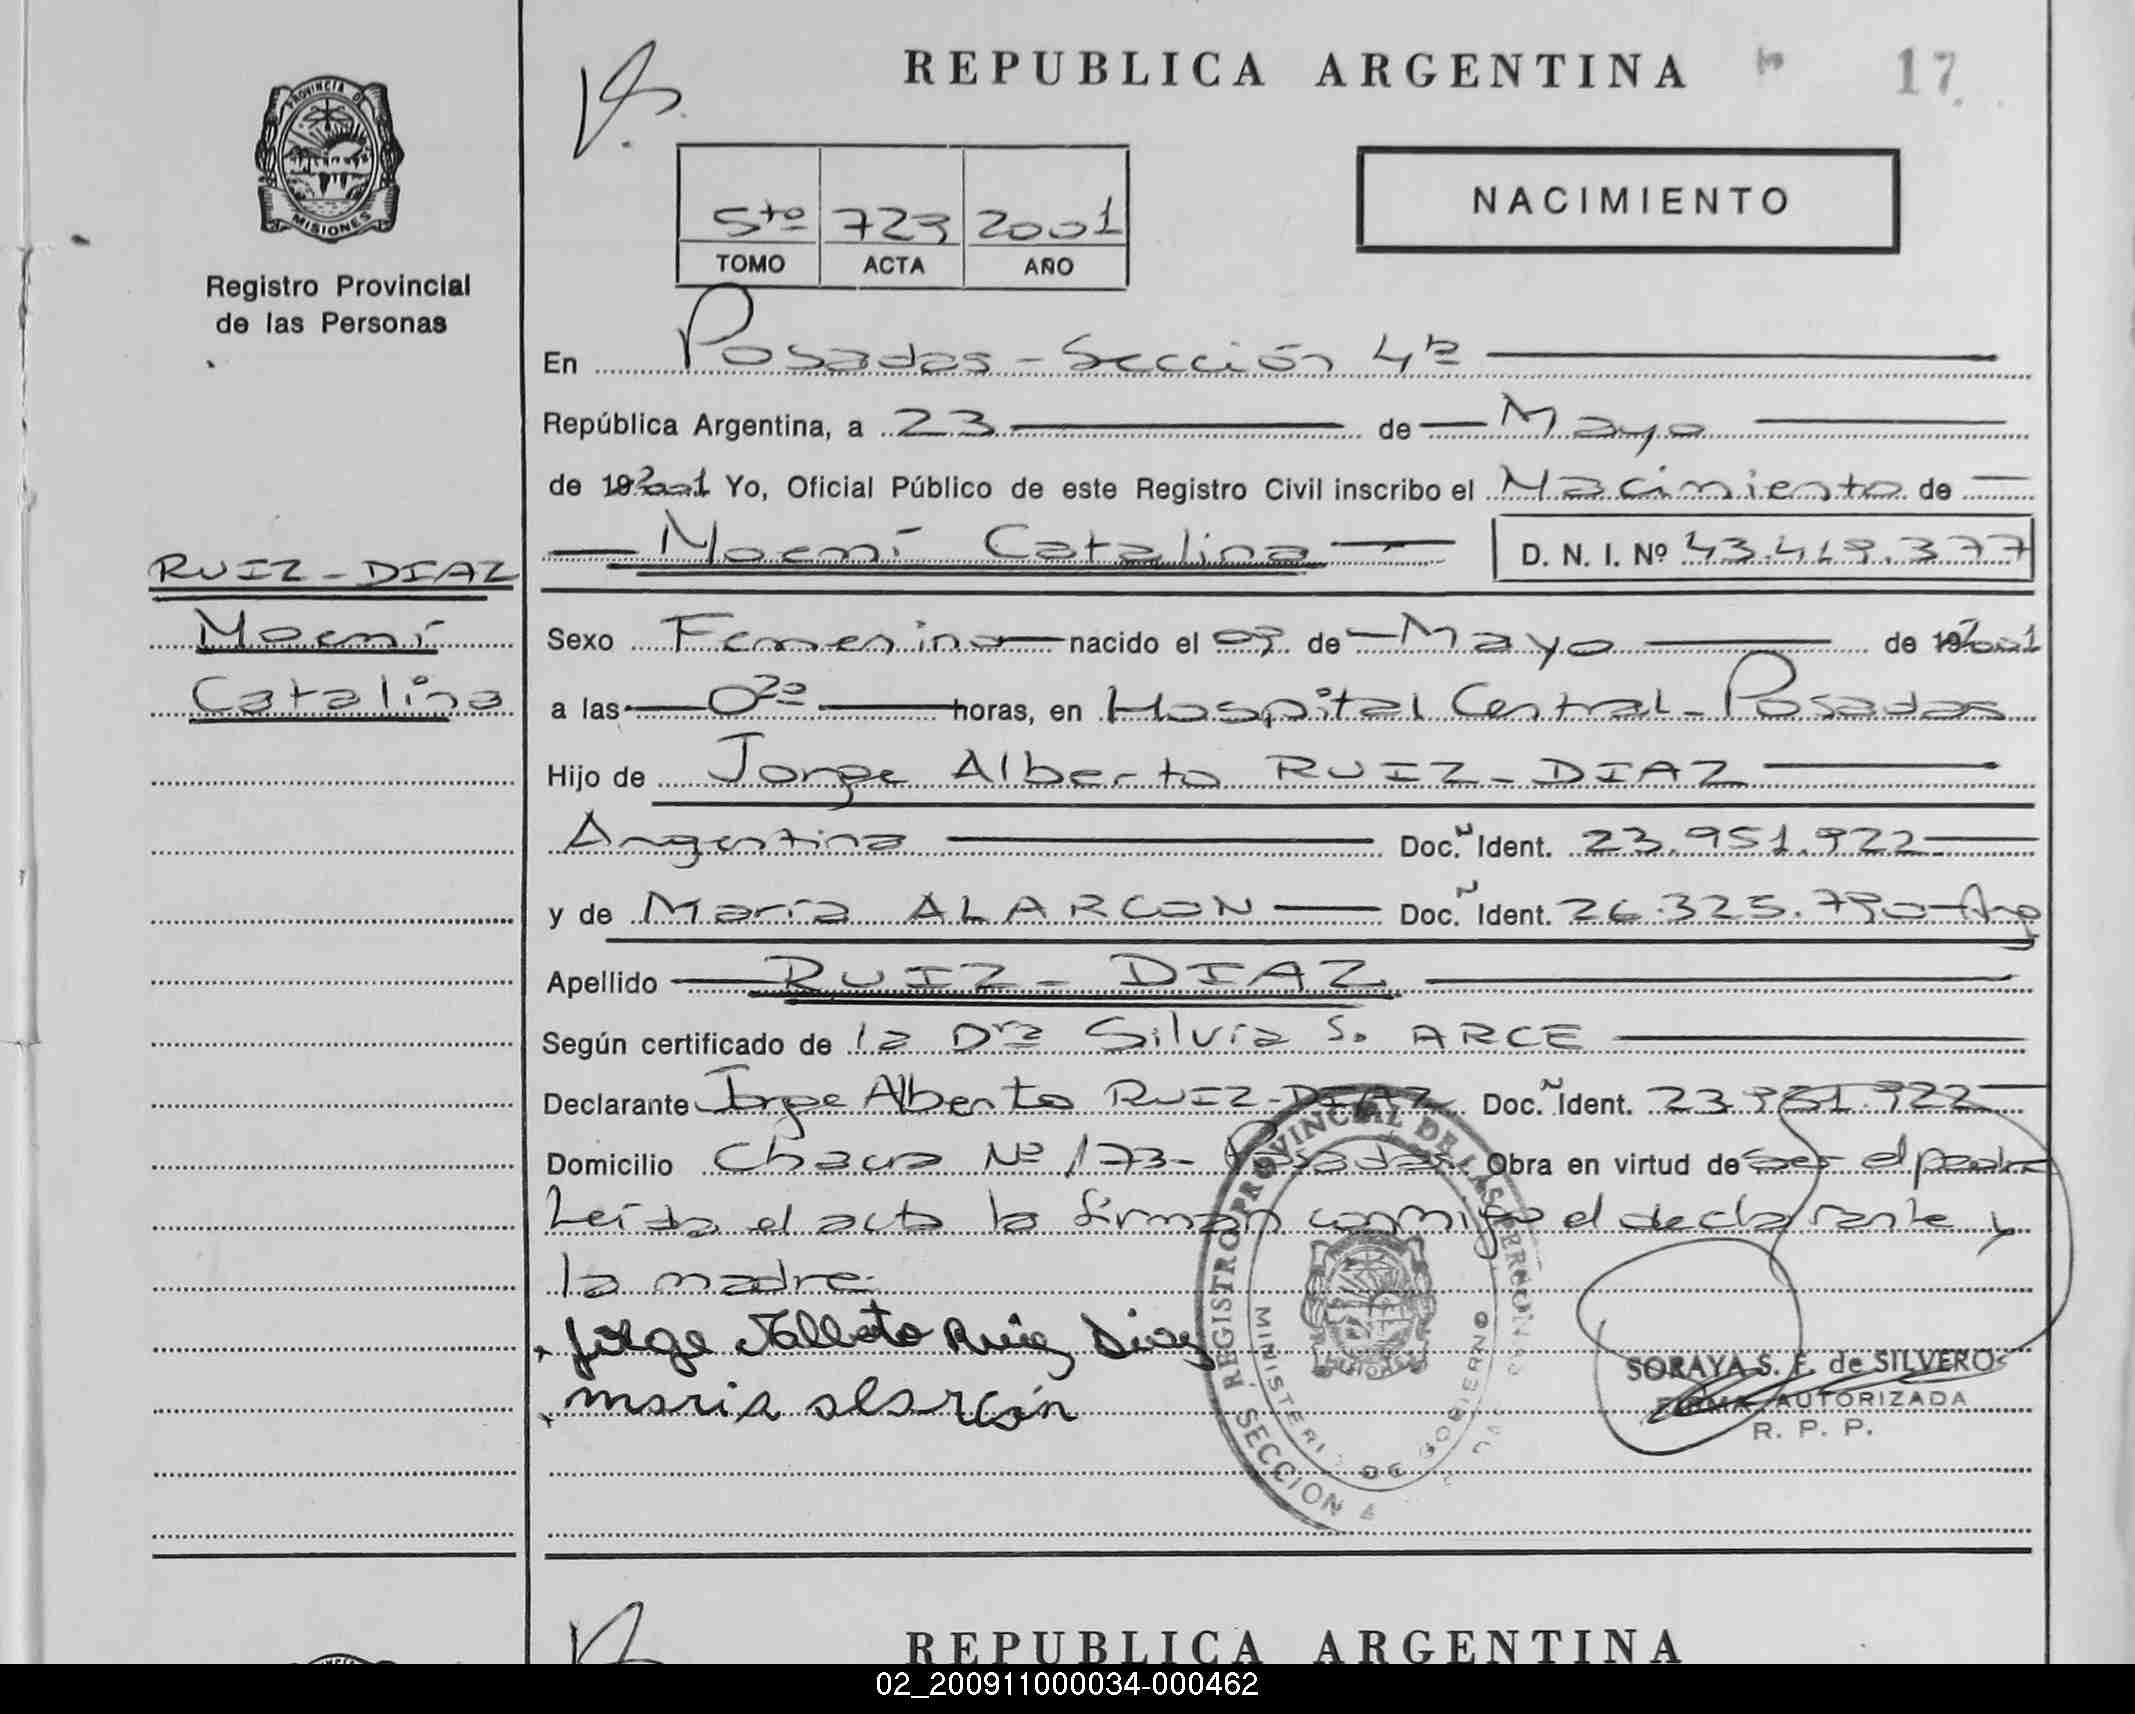 REPUBLICA ARGENTINA
17
PROVINCIA DE
MISIONES
Registro Provincial
de las Personas
5to 723 2001
TOMO ACTA AÑO
NACIMIENTO
En Posadas - Sección 4ta
República Argentina, a 23 de Mayo
de 192001 Yo, Oficial Público de este Registro Civil inscribo el Nacimiento de
Noemí Catalina D. N. I. Nº 43.419.377
RUIZ-DIAZ
Noemí
Catalina
Sexo Femenino nacido el 03 de Mayo de 192001
a las 020 horas, en Hospital Central - Posadas
Hijo de Jorge Alberto RUIZ-DIAZ
Argentina Doc. Ident. 23.951.922
y de María ALARCON Doc. Ident. 26.325.790-Arg
Apellido RUIZ-DIAZ
Según certificado de la Dra Silvia S. ARCE
Declarante Jorge Alberto RUIZ-DIAZ Doc. Ident. 23.951.922
Domicilio Chacra Nº 173- Posadas Obra en virtud de ser el padre
Leída el acta la firman conmigo el declarante y
la madre.
Jorge Alberto Ruiz Diaz
maria alarcón
REGISTRO PROVINCIAL DE LAS PERSONAS
MINISTERIO DE GOBIERNO
SECCION 4
SORAYA S. F. de SILVERO
FIRMA AUTORIZADA
R. P. P.
REPUBLICA ARGENTINA
02_200911000034-000462